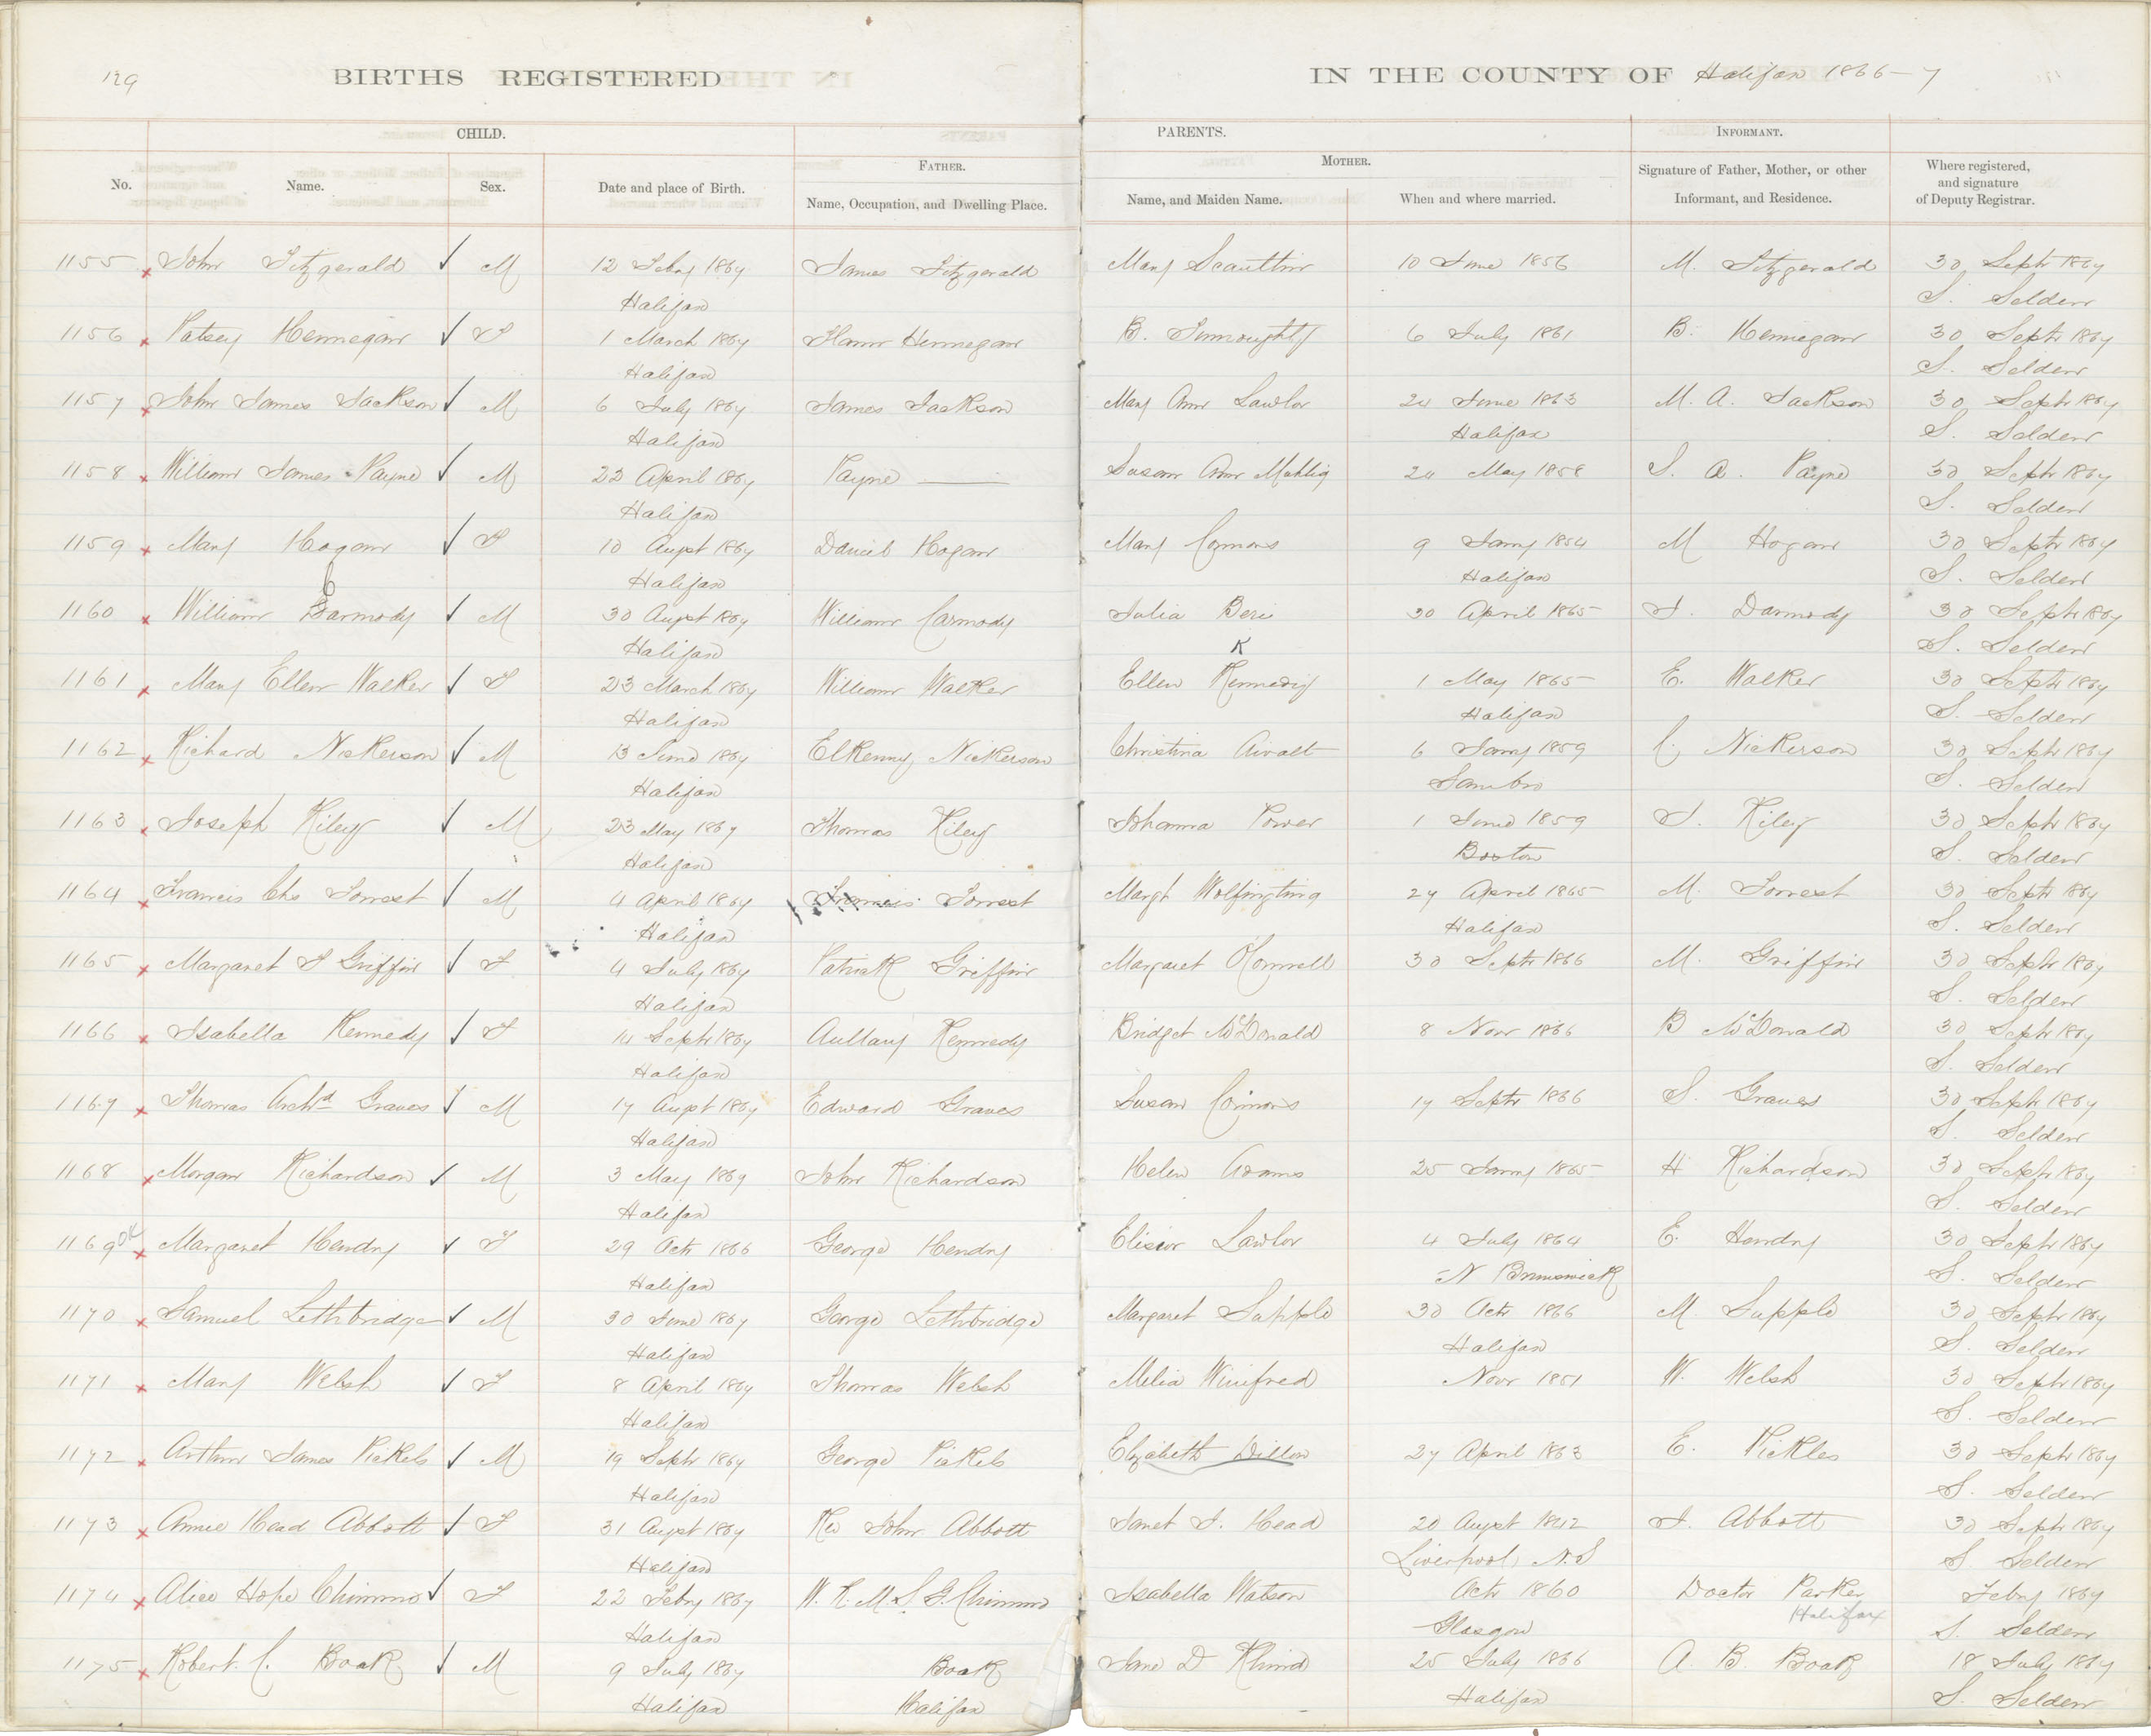 129
BIRTHS REGISTERED
IN THE COUNTY OF Halifax 1866-7
CHILD.
PARENTS.
INFORMANT.
FATHER.
MOTHER.
No.
Name.
Sex.
Date and place of Birth.
Name, Occupation, and Dwelling Place.
Name, and Maiden Name.
When and where married.
Signature of Father, Mother, or other
Informant, and Residence.
Where registered,
and signature
of Deputy Registrar.
1155 John Fitzgerald M 12 Feby 1867 James Fitzgerald Mary 10 June 1856 M. Fitzgerald 30 Septr 1867
Halifax S. Selden
1156 Patsey Hennegan F 1 March 1867 Hennegan B. 6 July 1861 B. Hennegan 30 Septr 1867
Halifax S. Selden
1157 John James Jackson M 6 July 1867 James Jackson Mary Ann Lawlor 24 June 1863 M. A. Jackson 30 Septr 1867
Halifax Halifax S. Selden
1158 William James Payne M 22 April 1867 Payne Susan Ann 24 May 1858 S. A. Payne 30 Septr 1867
Halifax S. Selden
1159 Mary Hogan F 10 Augst 1867 Daniel Hogan Mary Connors 9 Jany 1854 M Hogan 30 Septr 1867
Halifax Halifax S. Selden
1160 William Darmody M 30 Augst 1867 William Carmody Julia 30 April 1865 J. Darmody 30 Septr 1867
Halifax K S. Selden
1161 Mary Ellen Walker F 23 March 1867 William Walker Ellen Kennedy 1 May 1865 E. Walker 30 Septr 1867
Halifax Halifax S. Selden
1162 Richard Nickerson M 13 June 1867 Elkenny Nickerson Christina Awalt 6 Jany 1859 C. Nickerson 30 Septr 1867
Halifax Sambro S. Selden
1163 Joseph Riley M 23 May 1867 Thomas Riley Johanna Power 1 June 1859 J. Riley 30 Septr 1867
Halifax Boston S. Selden
1164 Francis Chs Forrest M 4 April 1867 Francis Forrest Margt 27 April 1865 M. Forrest 30 Septr 1867
Halifax Halifax S. Selden
1165 Margaret F Griffin F 4 July 1867 Patrick Griffin Margaret OConnell 30 Septr 1866 M. Griffin 30 Septr 1867
Halifax S. Selden
1166 Isabella Kennedy F 14 Septr 1867 Kennedy Bridget McDonald 8 Novr 1866 B McDonald 30 Septr 1867
Halifax S. Selden
1167 Thomas Archd Graves M 17 Augst 1867 Edward Graves Susan Connors 17 Septr 1866 S. Graves 30 Septr 1867
Halifax S. Selden
1168 Morgan Richardson M 3 May 1869 John Richardson Helen Adams 25 Jany 1865 H Richardson 30 Septr 1867
Halifax S. Selden
1169 OK Margaret Hendry F 29 Octr 1866 George Hendry Lawlor 4 July 1864 E. Hendry 30 Septr 1867
Halifax N Brunswick S. Selden
1170 Samuel Lethbridge M 30 June 1867 George Lethbridge Margaret Supple 30 Octr 1866 M Supple 30 Septr 1867
Halifax Halifax S. Selden
1171 Mary Welsh F 8 April 1867 Thomas Welsh Milia Winifred Novr 1851 W. Welsh 30 Septr 1867
Halifax S. Selden
1172 Arthur James Pickels M 19 Septr 1867 George Pickels Elizabeth Dillon 27 April 1863 E. Pickles 30 Septr 1867
Halifax S. Selden
1173 Annie Head Abbott F 31 Augst 1867 Rev John Abbott Janet J. Head 20 Augst 1842 J. Abbott 30 Septr 1867
Halifax Liverpool, N.S S. Selden
1174 Alice Hope Chimmo F 22 Feby 1867 W. R. M. S. G. Chimmo Isabella Watson Octr 1860 Doctor Parker Feby 1867
Halifax Glasgow Halifax S. Selden
1175 Robert C. Boak M 9 July 1867 Boak Jane D 25 July 1866 A. B. Boak 18 July 1867
Halifax Halifax Halifax S. Selden